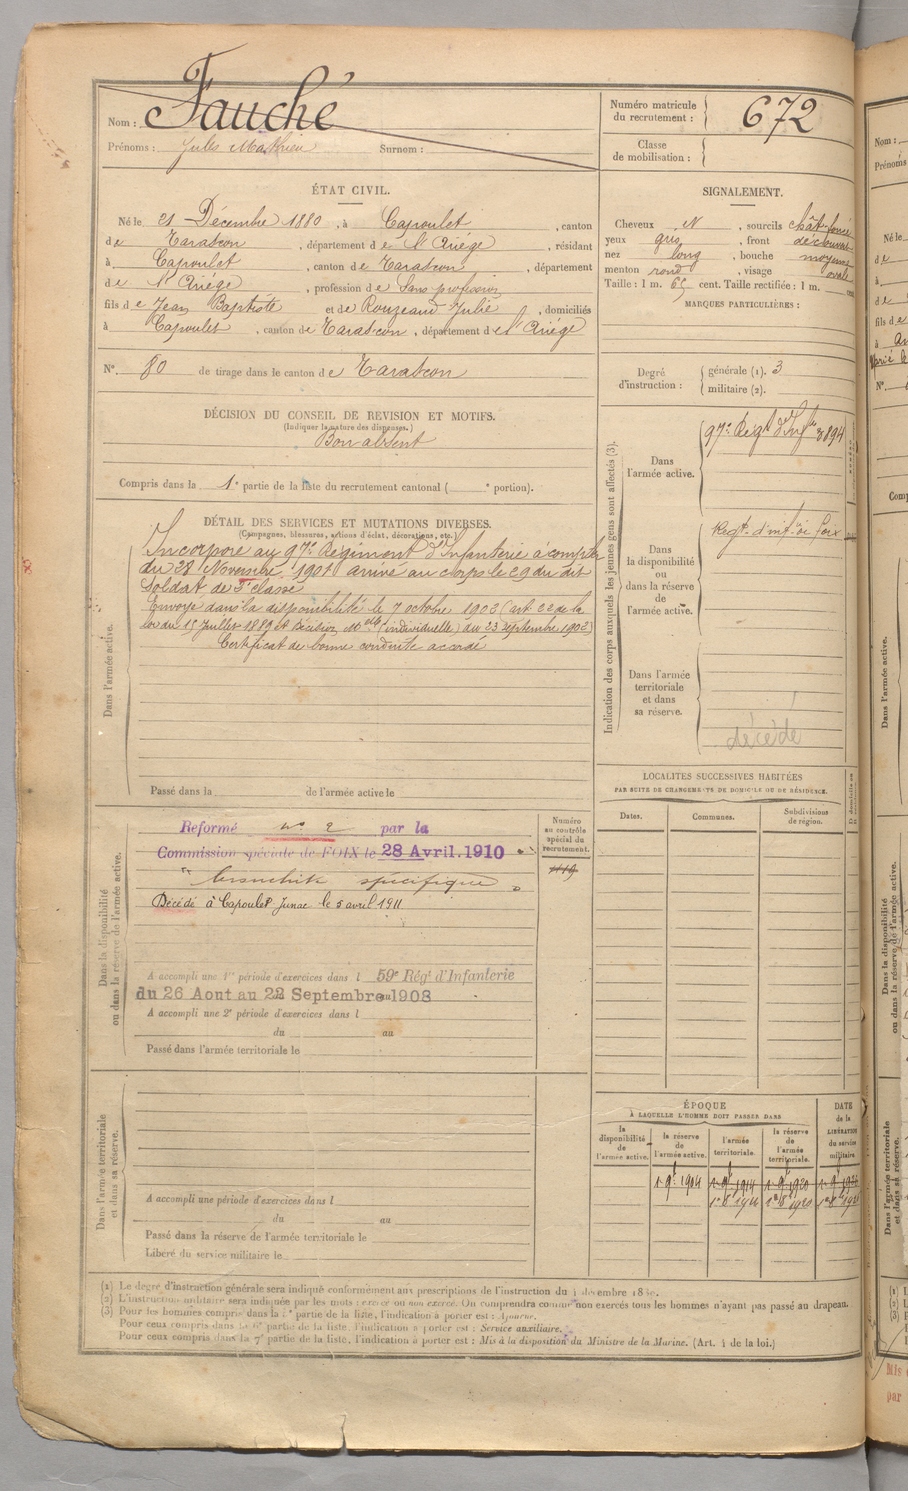 Nom : Fauché
Prénoms : Jules Mathieu Surnom :
Numéro matricule du recrutement : 672
Classe de mobilisation :
ÉTAT CIVIL.
Né le 21 Décembre 1880, à Capoulet, canton
de Tarascon, département de l'Ariège, résidant
à Capoulet, canton de Tarascon, département
de l'Ariège, profession de Sans profession
fils de Jean Baptiste et de Rouzeaud Julie, domiciliés
à Capoulet, canton de Tarascon, département de l'Ariège
N° 80 de tirage dans le canton de Tarascon
SIGNALEMENT.
Cheveux N, sourcils chât. foncé
yeux gris, front découvert
nez long, bouche moyenne
menton rond, visage ovale
Taille : 1 m. 65 cent. Taille rectifiée : 1 m. cent
MARQUES PARTICULIÈRES :
Degré d'instruction : générale (1). 3
militaire (2).
DÉCISION DU CONSEIL DE REVISION ET MOTIFS.
(Indiquer la nature des dispenses.)
Bon absent
Compris dans la 1e partie de la liste du recrutement cantonal ( e portion).
DÉTAIL DES SERVICES ET MUTATIONS DIVERSES.
(Campagnes, blessures, actions d'éclat, décorations, etc.)
Incorporé au 97e Régiment d'Infanterie à compter
du 28 Novembre 1901 arrivé au corps le 29 du dit
Soldat de 2e classe
Envoyé dans la disponibilité le 7 octobre 1902 (art. 22 de la
loi du 15 Juillet 1889 et Décision Mlle (individuelle) du 23 Septembre 1902)
Certificat de bonne conduite accordé
Dans l'armée active.
Passé dans la de l'armée active le
Indication des corps auxquels les jeunes gens sont affectés (3).
Dans l'armée active.
97e Régt d'Infie 2894
Dans la disponibilité ou dans la réserve de l'armée active.
Régt d'inf. de Foix
Dans l'armée territoriale et dans sa réserve.
décédé
LOCALITÉS SUCCESSIVES HABITÉES
PAR SUITE DE CHANGEMENTS DE DOMICILE OU DE RÉSIDENCE.
Dates. Communes. Subdivisions de région.
Dans la disponibilité ou dans la réserve de l'armée active.
Numéro au contrôle spécial du recrutement.
Reformé no 2 par la
Commission spéciale de FOIX le 28 Avril.1910
"bronchite spécifique"
Décédé à Capoulet Junac le 5 avril 1911
A accompli une 1re période d'exercices dans l 59e Régt d'Infanterie
du 26 Aout au 22 Septembre 1908
A accompli une 2e période d'exercices dans l
du au
Passé dans l'armée territoriale le
Dans l'armée territoriale et dans sa réserve.
A accompli une période d'exercices dans l
du au
Passé dans la réserve de l'armée territoriale le
Libéré du service militaire le
ÉPOQUE
À LAQUELLE L'HOMME DOIT PASSER DANS
la disponibilité de l'armée active. la réserve de l'armée active. l'armée territoriale. la réserve de l'armée territoriale.
DATE de la LIBÉRATION du service militaire.
(1) Le degré d'instruction générale sera indiqué conformément aux prescriptions de l'instruction du
(2) L'instruction militaire sera indiquée par les mots : exercé ou non exercé. On comprendra comme non exercés tous les hommes n'ayant pas passé au drapeau.
(3) Pour les hommes compris dans la partie de la liste, l'indication à porter est : Ajourné.
Pour ceux compris dans la 6e partie de la liste, l'indication à porter est : Service auxiliaire.
Pour ceux compris dans la 7e partie de la liste, l'indication à porter est : Mis à la disposition du Ministre de la Marine. (Art. 4 de la loi.)